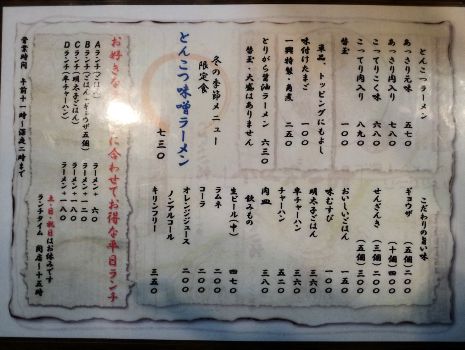 とんこつラーメン
あっさり元味 五七〇
あっさり肉入り 七八〇
こってりこく味 六八〇
こってり肉入り 八九〇
替玉 一〇〇
単品、トッピングにもよし
味付けたまご 一〇〇
一興特製・角煮 二五〇
とりがら醤油ラーメン 六三〇
替玉・大盛はありません
冬の季節メニュー
限定食
とんこつ味噌ラーメン
七三〇
こだわりの旨い味
ギョウザ (五個) 二〇〇
(十個) 四〇〇
せんざんき (三個) 二〇〇
(五個) 三〇〇
おいしいごはん 一五〇
味むすび 一〇〇
明太子ごはん 三六〇
半チャーハン 三六〇
チャーハン 五二〇
肉皿 三八〇
飲みもの
生ビール(中) 四七〇
ラムネ 二〇〇
コーラ 二〇〇
オレンジジュース 二〇〇
ノンアルコール
キリンフリー 三五〇
お好きな に合わせてお得な平日ランチ
Aランチ(ごはん) ラーメン+ 六〇
Bランチ(ごはん+ギョウザ五個) ラーメン+一二〇
Cランチ(明太子ごはん) ラーメン+一八〇
Dランチ(半チャーハン) ラーメン+一八〇
土・日・祝日はお休みです
ランチタイム 開店〜十五時
営業時間 午前十一時〜深夜二時まで